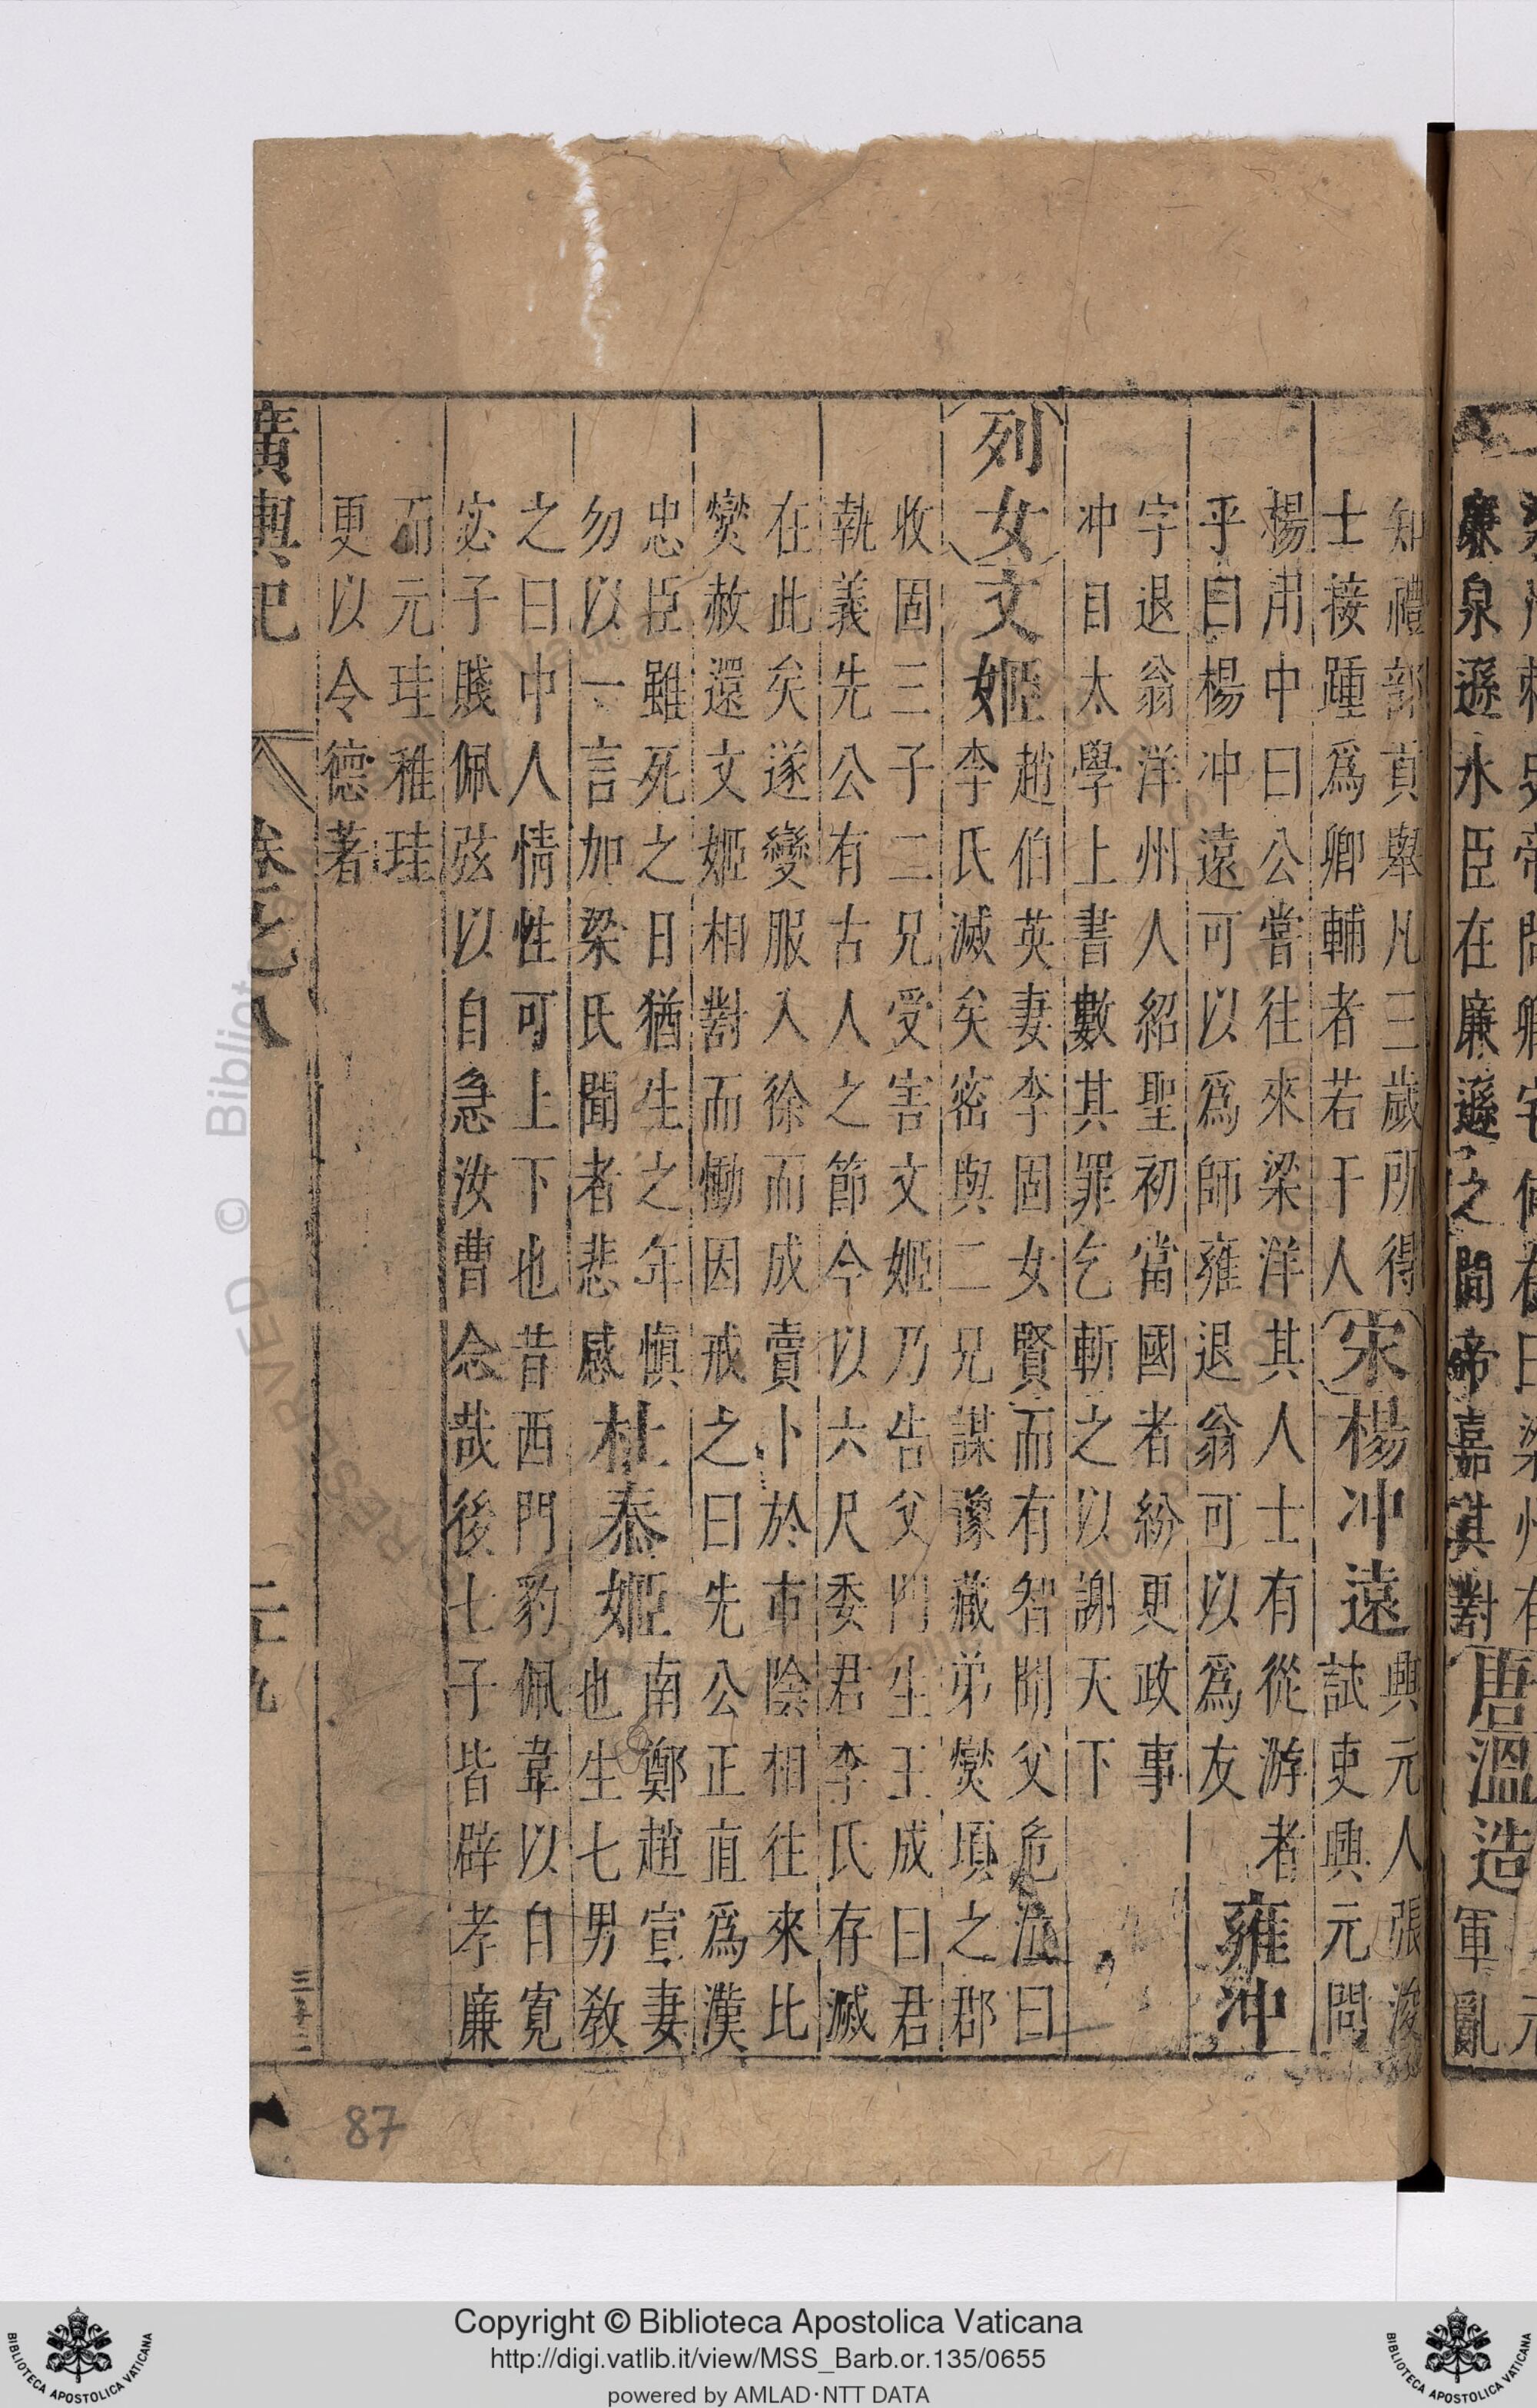 廉泉遜水臣在廉遜之間帝嘉其對
唐溫造
軍亂
知禮部貢舉凡三歲所得
士接踵爲卿輔者若干人
宋楊冲遠
興元人張浚
試吏興元問
楊用中曰公嘗往來梁洋其人士有從游者
乎曰楊冲遠可以爲師雍退翁可以爲友
雍沖
字退翁洋州人紹聖初當國者紛更政事
冲目太學上書數其罪乞斬之以謝天下
列女文姬
趙伯英妻李固女賢而有智聞父危泣曰
李氏滅矣密與二兄謀豫藏弟爕項之郡
收固三子二兄受害文姬乃告父門生王成曰君
執義先公有古人之節今以六尺委君李氏存滅
在此矣遂變服入徐而成賣卜於市陰相往來比
爕赦還文姬相對而慟因戒之曰先公正直爲漢
忠臣雖死之日猶生之年愼
勿以一言加梁氏聞者悲感
杜泰姬
南鄭趙宣妻
也生七男敎
之曰中人情性可上下也昔西門豹佩韋以自寬
宓子賤佩弦以自急汝曹念哉後七子皆辟孝廉
而元珪稚珪
更以令德著
廣輿記 卷之八 二十九
87
Copyright © Biblioteca Apostolica Vaticana
http://digi.vatlib.it/view/MSS_Barb.or.135/0655
powered by AMLAD·NTT DATA
BIBLIOTECA APOSTOLICA VATICANA
BIBLIOTECA APOSTOLICA VATICANA